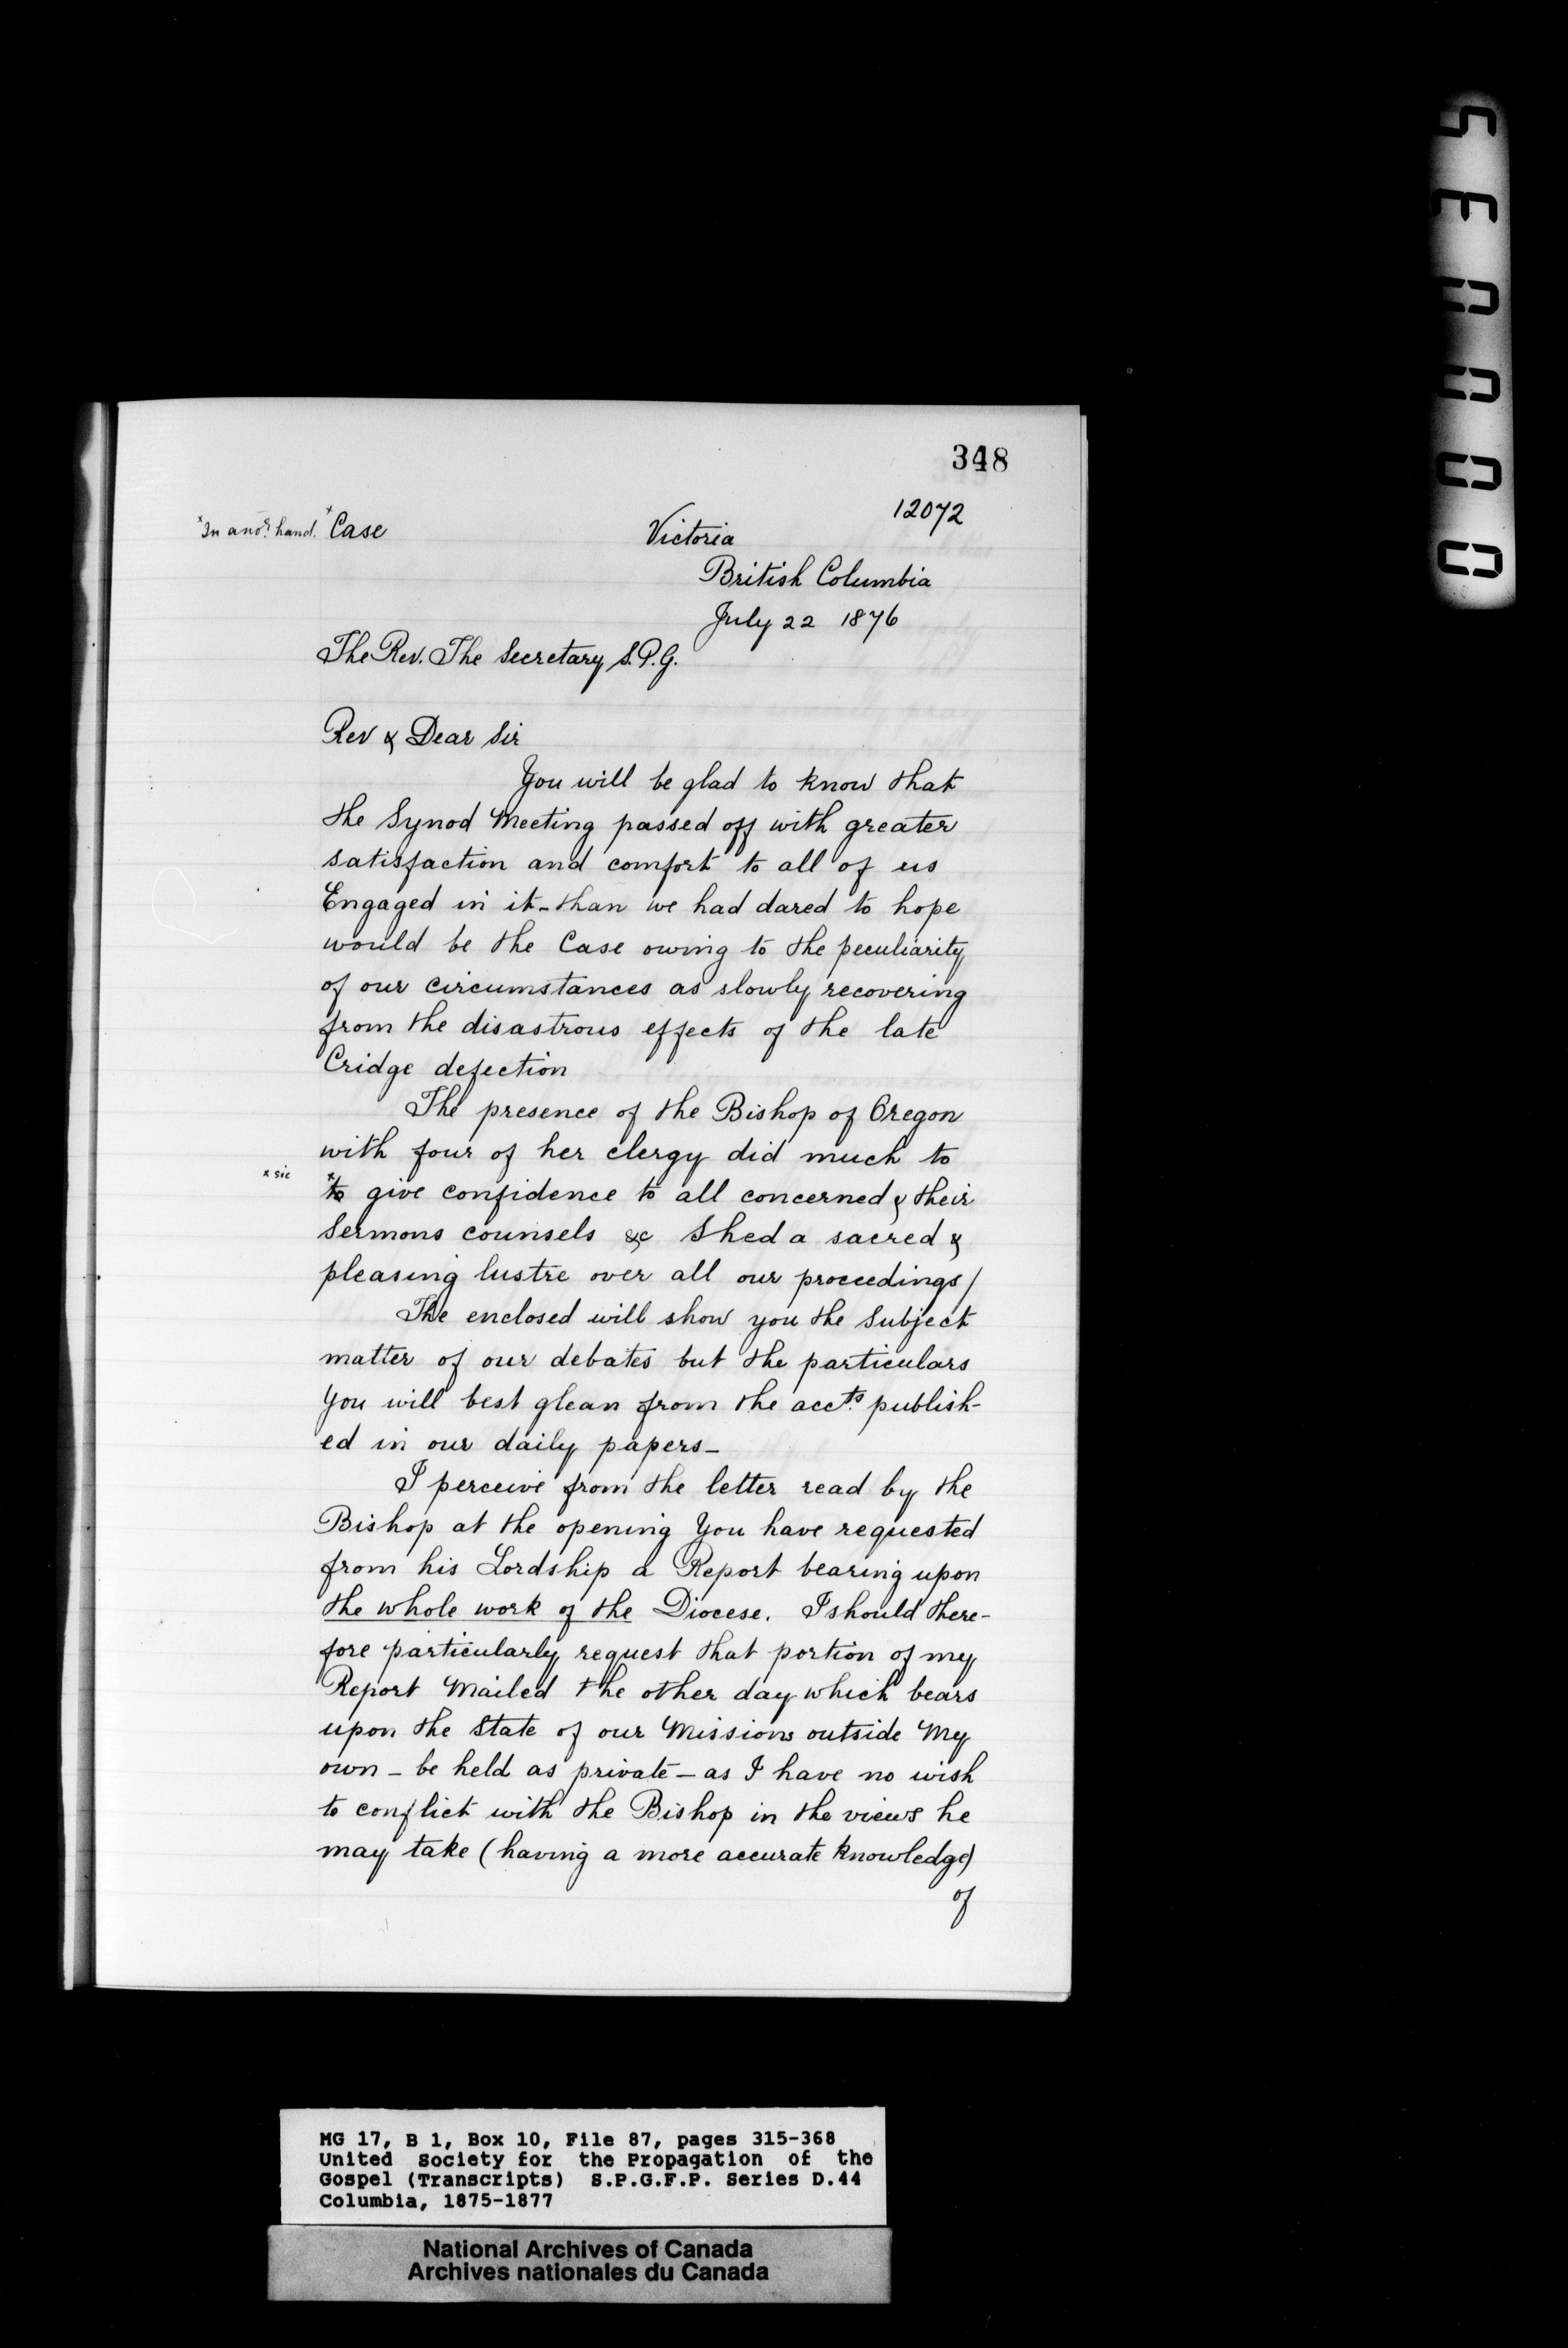 348
12072
x In anor. hand. x Case
Victoria
British Columbia
July 22 1876
The Rev. The Secretary S.P.G.
Rev & Dear Sir
You will be glad to know that
the Synod Meeting passed off with greater
satisfaction and comfort to all of us
Engaged in it - than we had dared to hope
would be the Case owing to the peculiarity
of our circumstances as slowly recovering
from the disastrous effects of the late
Cridge defection
The presence of the Bishop of Oregon
with four of her clergy did much to
x sic x to give confidence to all concerned & their
Sermons counsels &c Shed a sacred &
pleasing lustre over all our proceedings/
The enclosed will show you the Subject
matter of our debates but the particulars
You will best glean from the accts. publish-
ed in our daily papers -
I perceive from the letter read by the
Bishop at the opening You have requested
from his Lordship a Report bearing upon
the whole work of the Diocese. I should there-
fore particularly request that portion of my
Report Mailed the other day which bears
upon the State of our Missions outside My
own - be held as private - as I have no wish
to conflict with the Bishop in the views he
may take (having a more accurate knowledge)
of
MG 17, B 1, Box 10, File 87, pages 315-368
United Society for the Propagation of the
Gospel (Transcripts) S.P.G.F.P. Series D.44
Columbia, 1875-1877
National Archives of Canada
Archives nationales du Canada